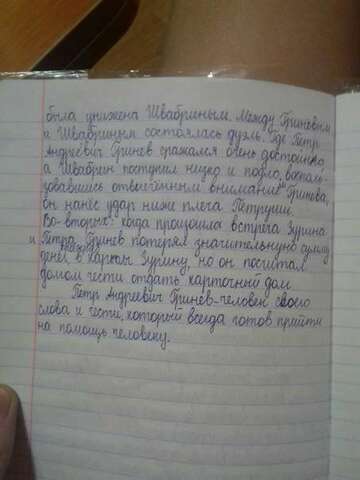 была унижена Швабриным. Между Гриневым
и Швабриным состоялась дуэль. Где Петр
Андреевич Гринев сражался очень достойно,
а Швабрин поступил низко и подло, воспол-
зовавшись отвлечённым внимание Гринева,
он нанёс удар ниже плеча Петруши.
Во-вторых: когда произошла встреча Зурина
и Петра. Гринев потерял значительную сумму
денег в карты Зурину, но он посчитал
домом чести отдать карточный дом
Петр Андреевич Гринев-человек своего
слова и чести, который всегда готов прийти
на помощь человеку.